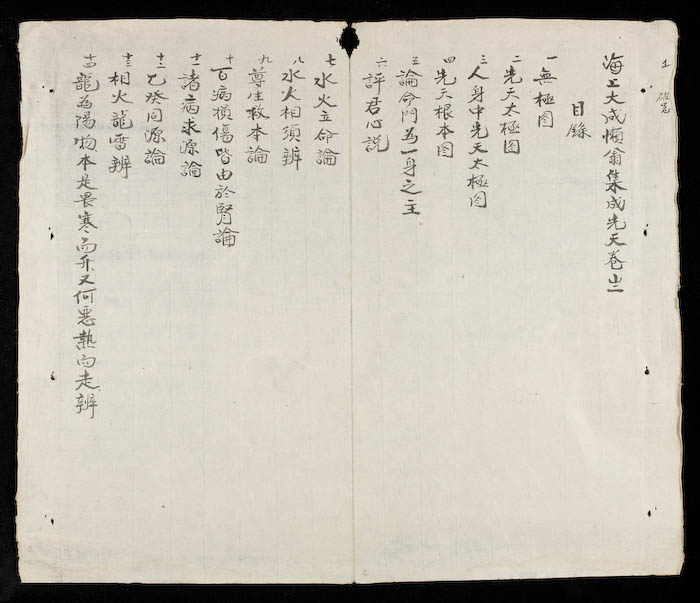 海上大成懶翁集成先天卷之二
目錄
一 無極图
二 先天太極图
三 人身中先天太極图
四 先天根本图
五 論命門為一身之主
六 評君心説
七 水火立命論
八 水火相須辨
九 尊生救本論
十 百病損傷皆由於腎論
十一 諸病求源論
十二 乙癸同源論
十三 相火龍雷辨
十四 龍為陽物本是畏寒而升又何惡熱而走辨